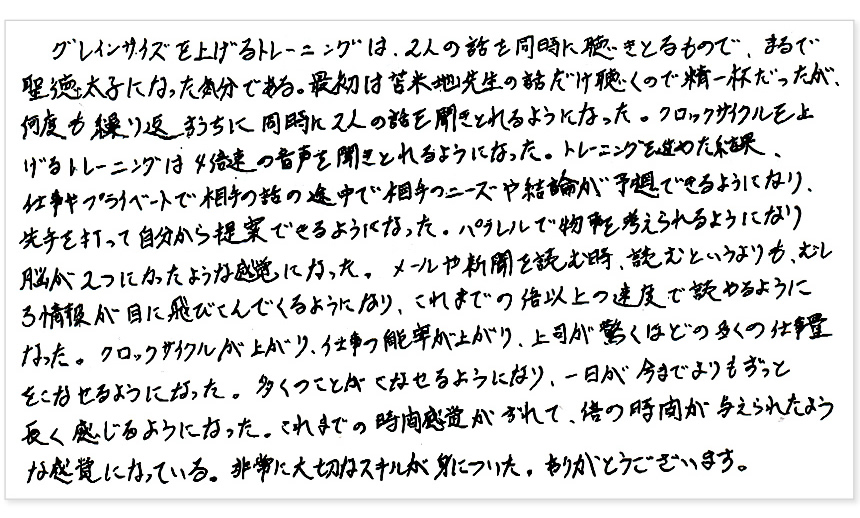 グレインサイズを上げるトレーニングは、2人の話を同時に聴きとるもので、まるで
聖徳太子になった気分である。最初は苫米地先生の話だけ聴くので精一杯だったが、
何度も繰り返すうちに同時に2人の話を聞きとれるようになった。クロックサイクルを上
げるトレーニングは4倍速の音声を聞きとれるようになった。トレーニングを進めた結果、
仕事やプライベートで相手の話の途中で相手のニーズや結論が予想できるようになり、
先手を打って自分から提案できるようになった。パラレルで物事を考えられるようになり
脳が2つになったような感覚になった。メールや新聞を読む時、読むというよりも、むし
ろ情報が目に飛びこんでくるようになり、これまでの倍以上の速度で読めるように
なった。クロックサイクルが上がり、仕事の能率が上がり、上司が驚くほどの多くの仕事量
をこなせるようになった。多くのことがこなせるようになり、一日が今までよりもずっと
長く感じるようになった。これまでの時間感覚がずれて、倍の時間が与えられたよう
な感覚になっている。非常に大切なスキルが身についた。ありがとうございます。